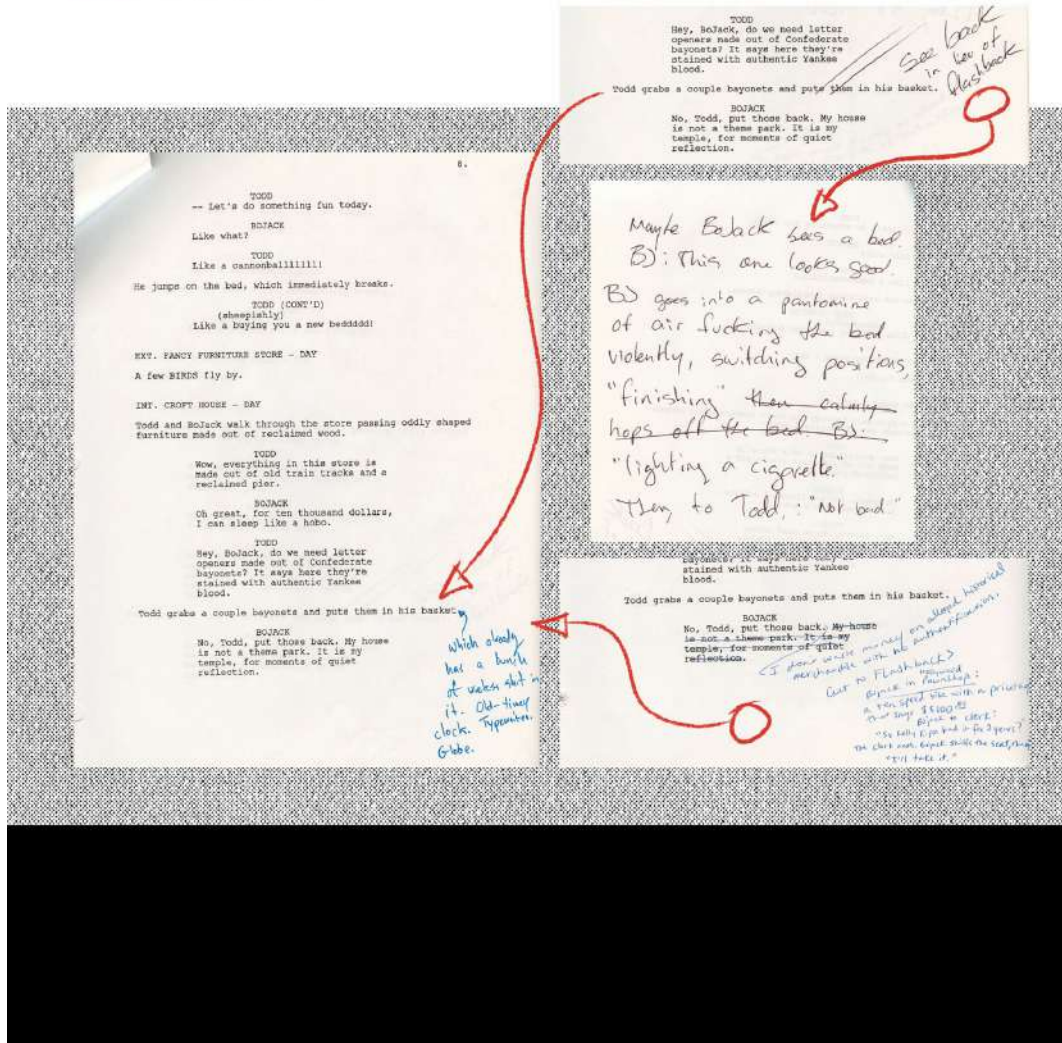 6.
TODD
-- Let's do something fun today.
BOJACK
Like what?
TODD
Like a cannonballllllll!
He jumps on the bed, which immediately breaks.
TODD (CONT'D)
(sheepishly)
Like a buying you a new beddddd!
EXT. FANCY FURNITURE STORE - DAY
A few BIRDS fly by.
INT. CROFT HOUSE - DAY
Todd and BoJack walk through the store passing oddly shaped
furniture made out of reclaimed wood.
TODD
Wow, everything in this store is
made out of old train tracks and a
reclaimed pier.
BOJACK
Oh great, for ten thousand dollars,
I can sleep like a hobo.
TODD
Hey, BoJack, do we need letter
openers made out of Confederate
bayonets? It says here they're
stained with authentic Yankee
blood.
Todd grabs a couple bayonets and puts them in his basket.
BOJACK
No, Todd, put those back. My house
is not a theme park. It is my
temple, for moments of quiet
reflection.
which already
has a bunch
of useless shit in
it. Old-timey
clock. Typewriter.
Globe.
TODD
Hey, BoJack, do we need letter
openers made out of Confederate
bayonets? It says here they're
stained with authentic Yankee
blood.
Todd grabs a couple bayonets and puts them in his basket.
BOJACK
No, Todd, put those back. My house
is not a theme park. It is my
temple, for moments of quiet
reflection.
See back
in lieu of
flashback
Maybe BoJack sees a bed.
BJ: This one looks good.
BJ goes into a pantomine
of air fucking the bed
violently, switching positions,
"finishing" then calmly
hops off the bed. BJ:
"lighting a cigarette."
Then, to Todd,: "Not bad"
bayonets? It says here they're
stained with authentic Yankee
blood.
Todd grabs a couple bayonets and puts them in his basket.
BOJACK
No, Todd, put those back. My house
is not a theme park. It is my
temple, for moments of quiet
reflection.
I don't waste money on alleged historical
merchandise with no authentification.
Cut to Flashback
Bojack in Pawnshop:
a ten speed bike with a pricetag
that says $5000
Bojack to clerk:
"So Kelly Ripa had it for 3 years?"
The clerk nods. Bojack sniffs the seat,
"I'll take it."